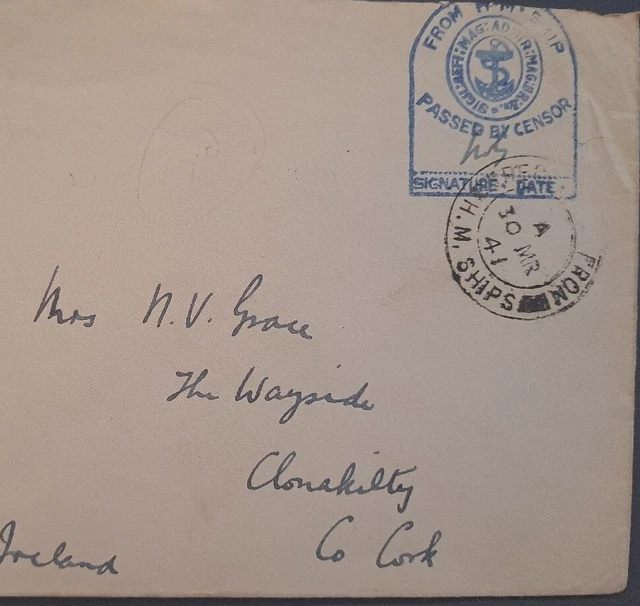 FROM H.M. SHIP
SIGILL:REFI:MAG:ADMIR:MAG:BR:&c.
PASSED BY CENSOR
SIGNATURE DATE
FROM H.M. SHIPS
A
30 MR
41
Mrs N.V. Grace
The Wayside
Clonakilty
Co Cork
Ireland